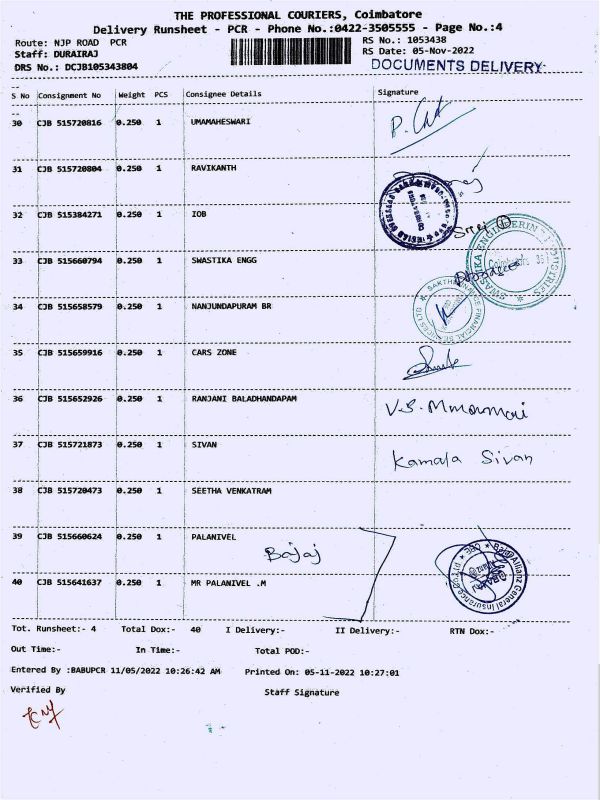 THE PROFESSIONAL COURIERS, Coimbatore
Delivery Runsheet - PCR - Phone No.:0422-3505555 - Page No.:4
Route: NJP ROAD PCR
RS No.: 1053438
Staff: DURAIRAJ
RS Date: 05-Nov-2022
DRS No.: DCJB105343804
DOCUMENTS DELIVERY
S No Consignment No Weight PCS Consignee Details Signature
30 CJB 515720816 0.250 1 UMAMAHESWARI
31 CJB 515720804 0.250 1 RAVIKANTH
32 CJB 515384271 0.250 1 IOB
33 CJB 515660794 0.250 1 SWASTIKA ENGG
34 CJB 515658579 0.250 1 NANJUNDAPURAM BR
35 CJB 515659916 0.250 1 CARS ZONE
36 CJB 515652926 0.250 1 RANJANI BALADHANDAPAM
37 CJB 515721873 0.250 1 SIVAN Kamala Sivan
38 CJB 515720473 0.250 1 SEETHA VENKATRAM
39 CJB 515660624 0.250 1 PALANIVEL
Bajaj
40 CJB 515641637 0.250 1 MR PALANIVEL .M
Tot. Runsheet:- 4 Total Dox:- 40 I Delivery:- II Delivery:- RTN Dox:-
Out Time:- In Time:- Total POD:-
Entered By :BABUPCR 11/05/2022 10:26:42 AM Printed On: 05-11-2022 10:27:01
Verified By Staff Signature